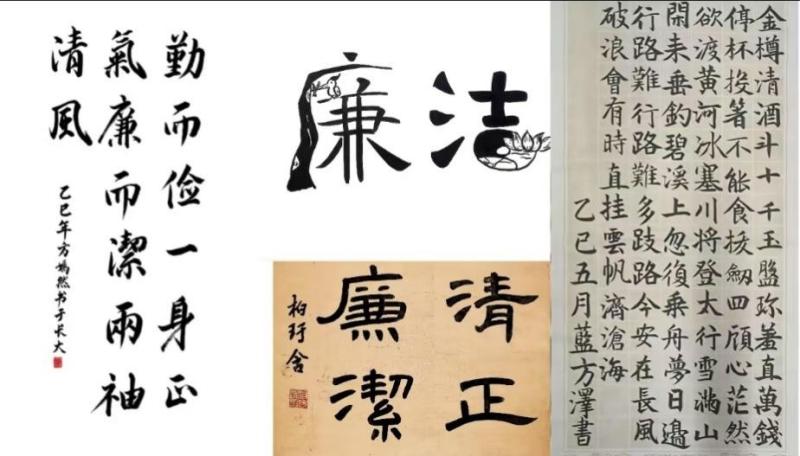 勤而俭一身正
氣廉而潔兩袖
清風
乙巳年方嫣然书于长大
廉洁
清正
廉潔
金樽清酒斗十千玉盤珍羞直萬錢
停杯投箸不能食拔劔四顧心茫然
欲渡黄河冰塞川将登太行雪滿山
閑来垂釣碧溪上忽復乘舟夢日邊
行路難行路難多歧路今安在長風
破浪會有時直挂雲帆濟滄海
乙巳五月藍方澤書